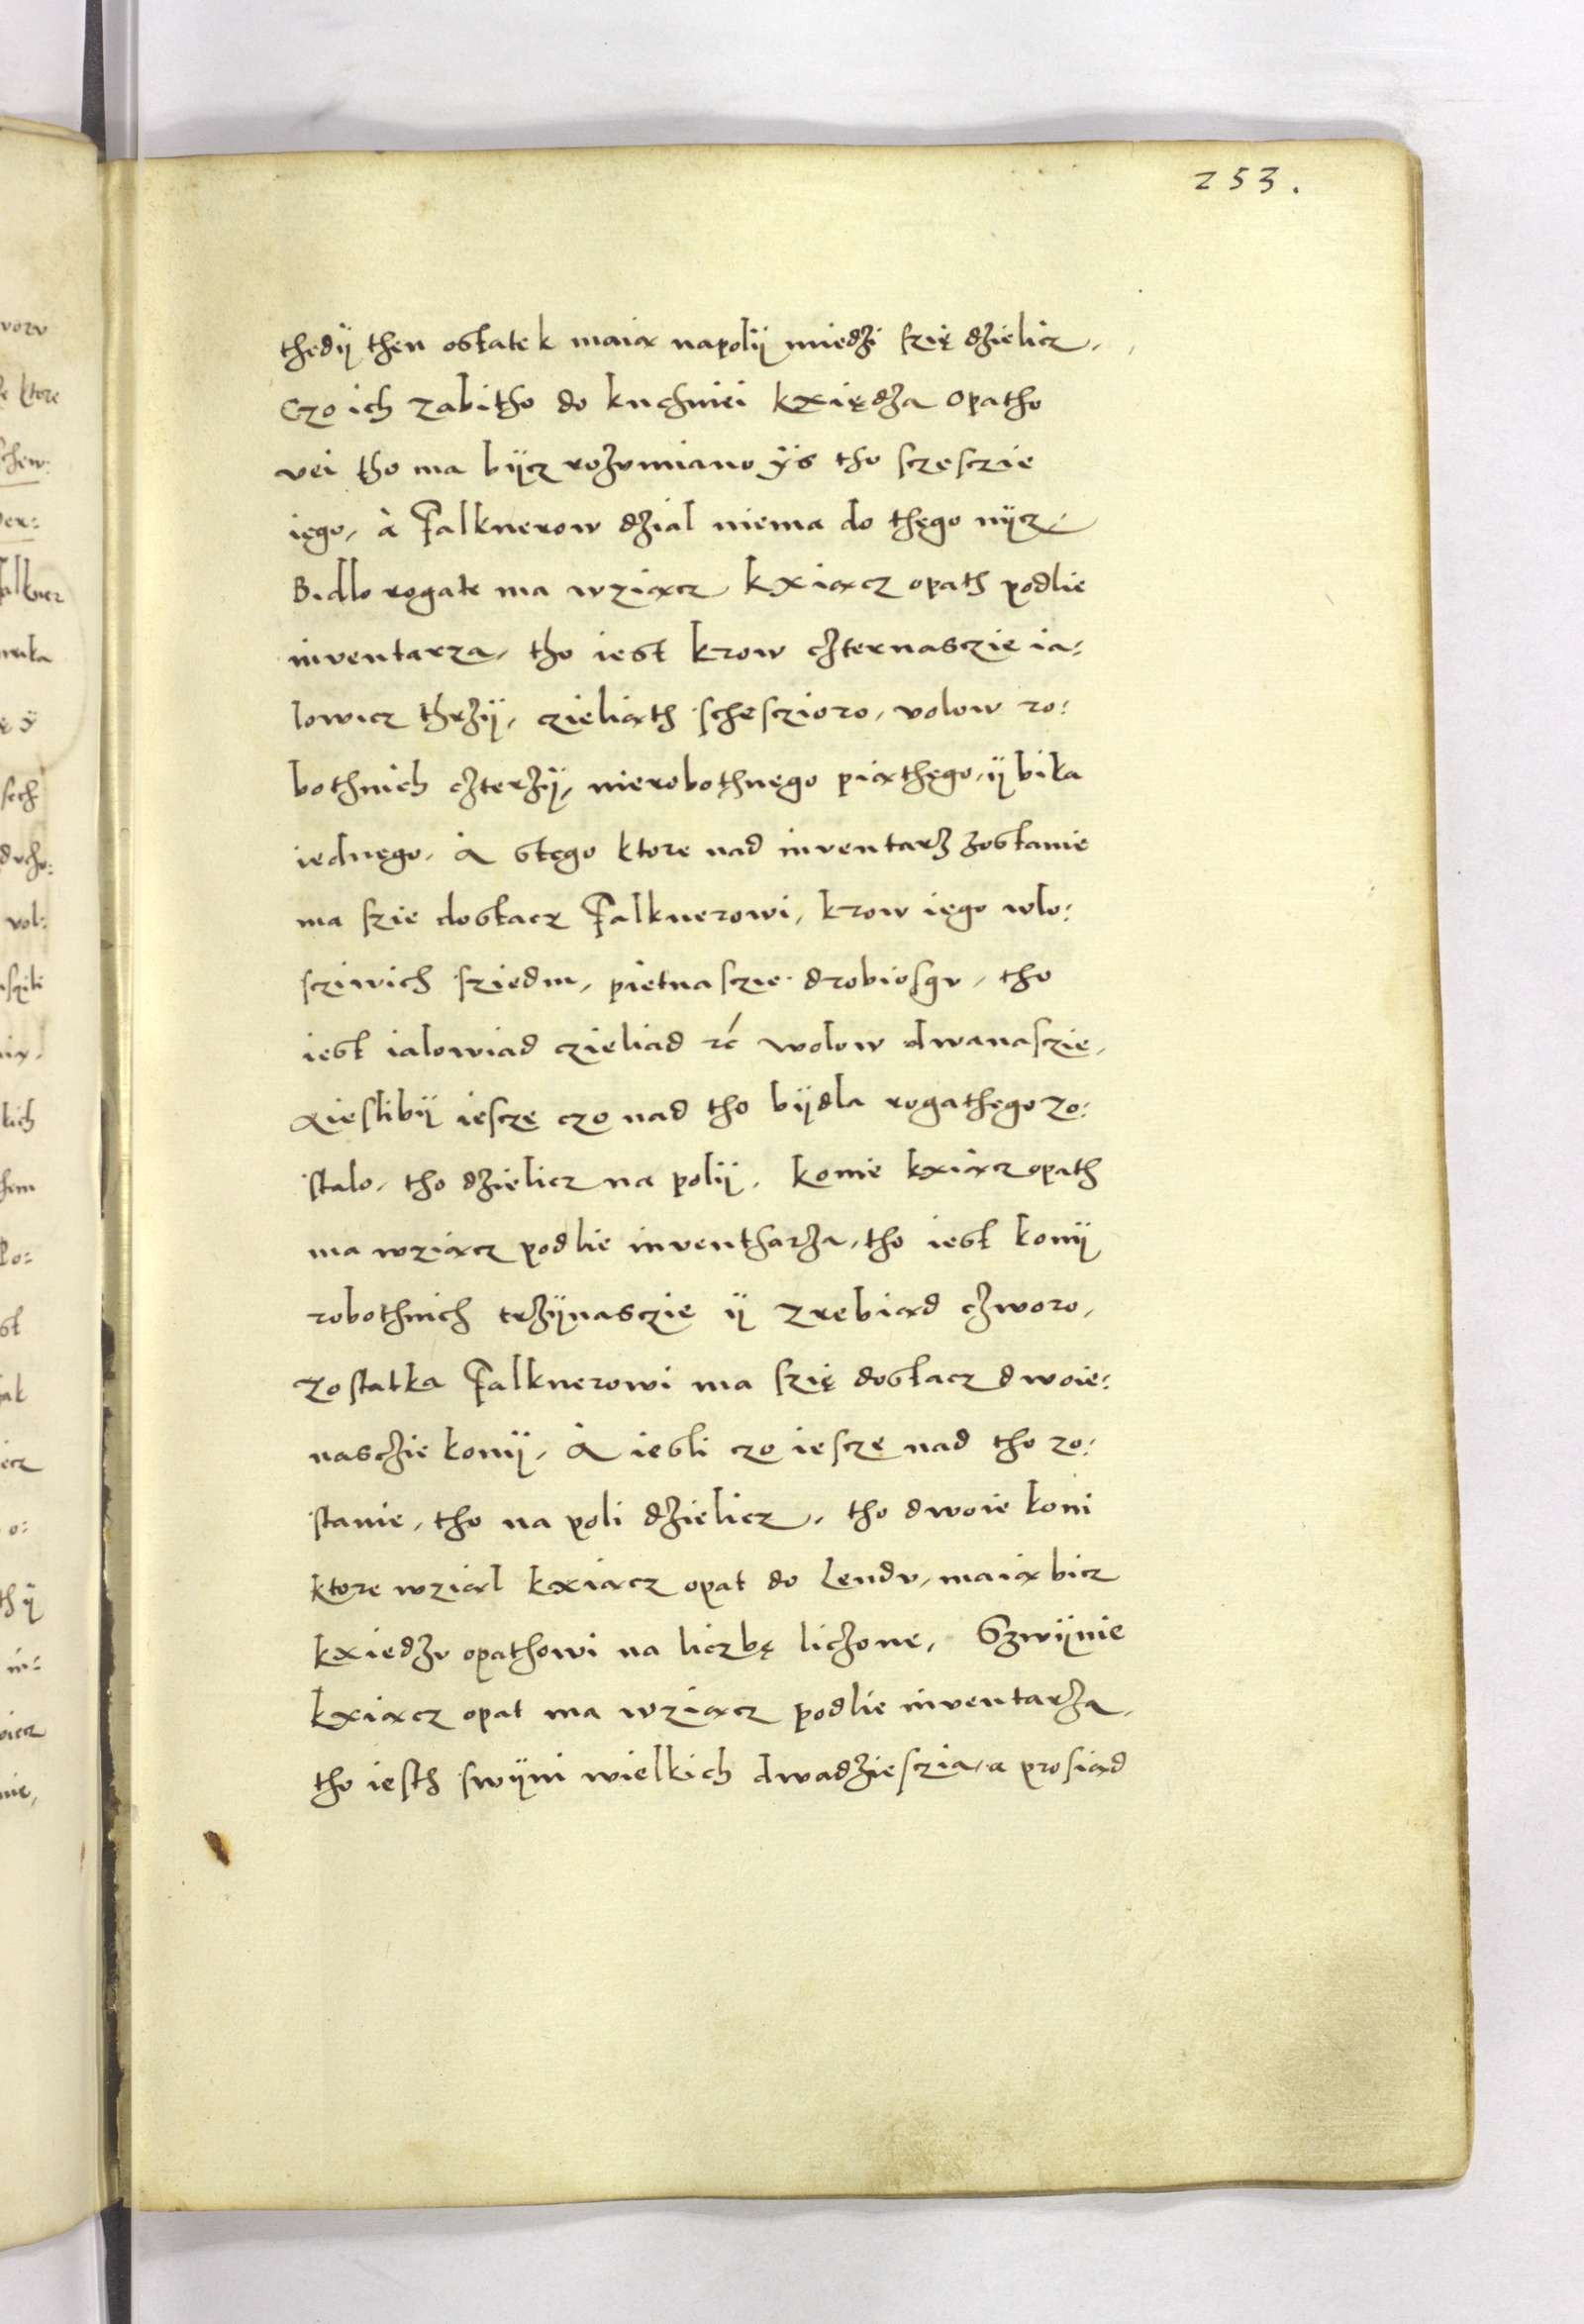 253.
thedÿ then ostatek maią napolÿ miedzi szię dzielicz.
Czo ich zabitho do kuchniei kxiędza Opatho
vei tho ma bÿcz rozvmiano ÿs tho sczęsczie
iego, à Falknerow dzial niema do thego nÿcz.
Bidlo rogate ma wziącz kxiącz opath podlie
inventarza, tho iest krow czternasczie ia:
lowicz thrzÿ, czieliąth schesczioro, volow ro:
bothnich czterzÿ, nierobothnego piąthego, ÿ bika
iednego. A stego ktore nad inventarz zostanie
ma szie dostacz Falknerowi, krow iego wlo:
scziwich sziedm, pietnasczie drobiosgv, tho
iest ialowiad czieliad rć wolow dwanasczie,
A ieslibÿ iescze czo nad tho bÿdla rogathego zo:
stalo, tho dzielicz na polÿ. Konie kxiącz opath
ma wziącz podlie inventharza, tho iest konÿ
robothnich trzÿnasczie ÿ zrebiąd czworo,
zostatka Falknerowi ma szię dostacz dwoie:
nasczie konÿ, A iesli czo iescze nad tho zo:
stanie, tho na poli dzielicz, tho dwoie koni
ktore wziąl kxiącz opat do Lendv, maią bicz
kxiedzv opathowi na liczbę liczone, Szwÿnie
kxiącz opat ma wziącz podlie inventarza,
tho iesth swÿni wielkich dwadziesczia, a prosiąd